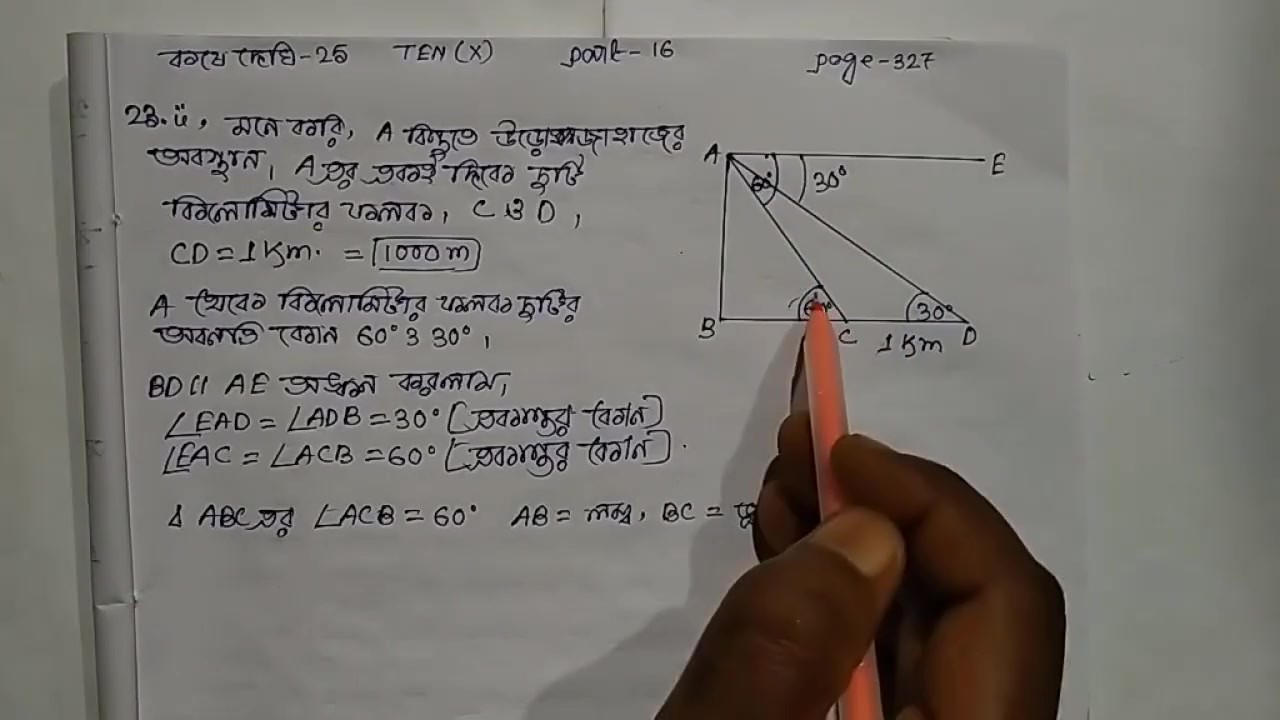 কষে দেখি-25 TEN (X) part-16 page-327
23.ii, মনে করি, A বিন্দুতে উড়োজাহাজের
অবস্থান। A এর একই দিকে দুটি
কিলোমিটার ফলক, C ও D,
CD = 1 Km. = 1000 m
A থেকে কিলোমিটার ফলক দুটির
অবনতি কোণ 60° ও 30°,
BD || AE অঙ্কন করলাম,
∠EAD = ∠ADB = 30° [একান্তর কোণ]
∠EAC = ∠ACB = 60° [একান্তর কোণ].
Δ ABC এর ∠ACB = 60° AB = লম্ব, BC =
A E
60° 30°
60° 30°
B C 1 Km D